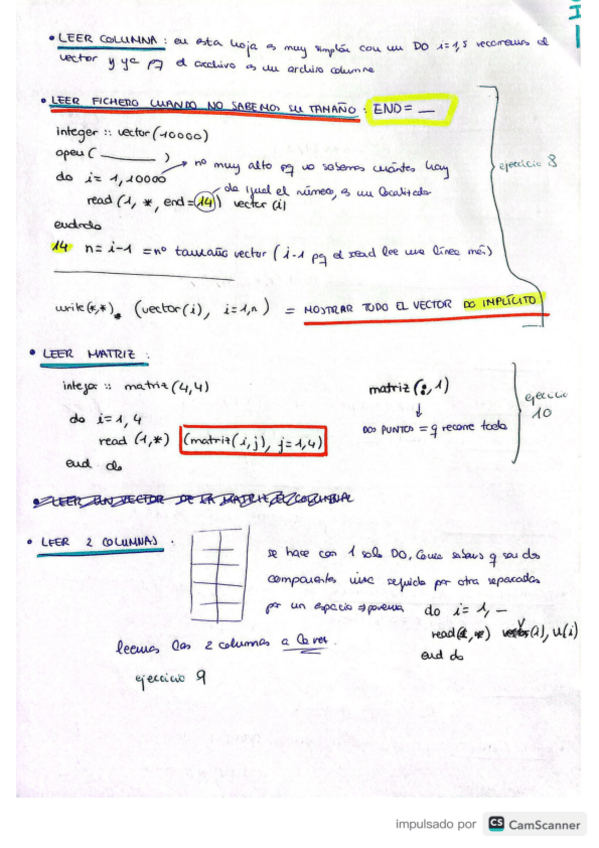 • LEER COLUMNA : en esta hoja es muy simple con un DO i=1,5 recorremos el
vector y ya pq el archivo es un archivo columna
• LEER FICHERO CUANDO NO SABEMOS SU TAMAÑO : END = __
integer :: vector(10000)
open( ______ )
nº muy alto pq no sabemos cuántos hay
do i=1,10000
da igual el número, es un localizador
read (1, *, end=14) vector (i)
enddo
14 n= i-1 = nº tamaño vector ( i-1 pq el read lee una línea más)
ejercicio 8
write(*,*) (vector(i), i=1,n ) = MOSTRAR TODO EL VECTOR DO IMPLÍCITO
• LEER MATRIZ :
integer :: matriz (4,4)
do i=1, 4
read (1,*) (matriz(i,j), j=1,4)
end do
matriz(:,1)
DOS PUNTOS = q recorre todo
ejercicio
10
• LEER UN VECTOR DE LA MATRIZ
• LEER 2 COLUMNAS .
se hace con 1 solo DO, como sabes q son dos
componentes una seguida por otra separadas
por un espacio → ponemos do i=1, —
read(1, *) v(i), u(i)
end do
leemos las 2 columnas a la vez.
ejercicio 9
impulsado por CS CamScanner